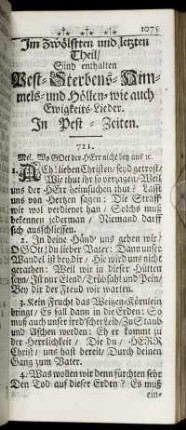 1075
Im zwölfften und letzten
Theil/
Sind enthalten
Pest-Sterbens-Him-
mels- und Höllen- wie auch
Ewigkeits-Lieder.
In Pest-Zeiten.
721.
Mel. Wo GOtt der HErr nicht bey uns ic.
1. ACh lieben Christen/ seyd getrost/
Wie thut ihr so verzagen? Weil
uns der HErr heimsuchen thut? Lasst
uns von Hertzen sagen: Die Straff
wir wol verdienet han/ Solchs muß
bekennen jederman/ Niemand darff
sich ausschliessen.
2. In deine Händ' uns geben wir/
O GOtt du lieber Vater: Dann unser
Wandel ist bey dir/ Hie wird uns nicht
gerathen: Weil wir in dieser Hütten
seyn/ Ist nur Elend/ Trübsahl und Pein/
Bey dir der Freud wir warten.
3. Kein Frucht das Weitzen-Körnlein
bringt/ Es fall dann in die Erden: So
muß auch unser irrdscher Leib/ Zu Staub
und Aschen werden: Eh er kommt zu
der Herrlichkeit/ Die du/ HERR
Christ/ uns hast bereit/ Durch deinen
Gang zum Vater.
4. Was wollen wir denn fürchten sehr
Den Tod auf dieser Erden? Es muß
ein-